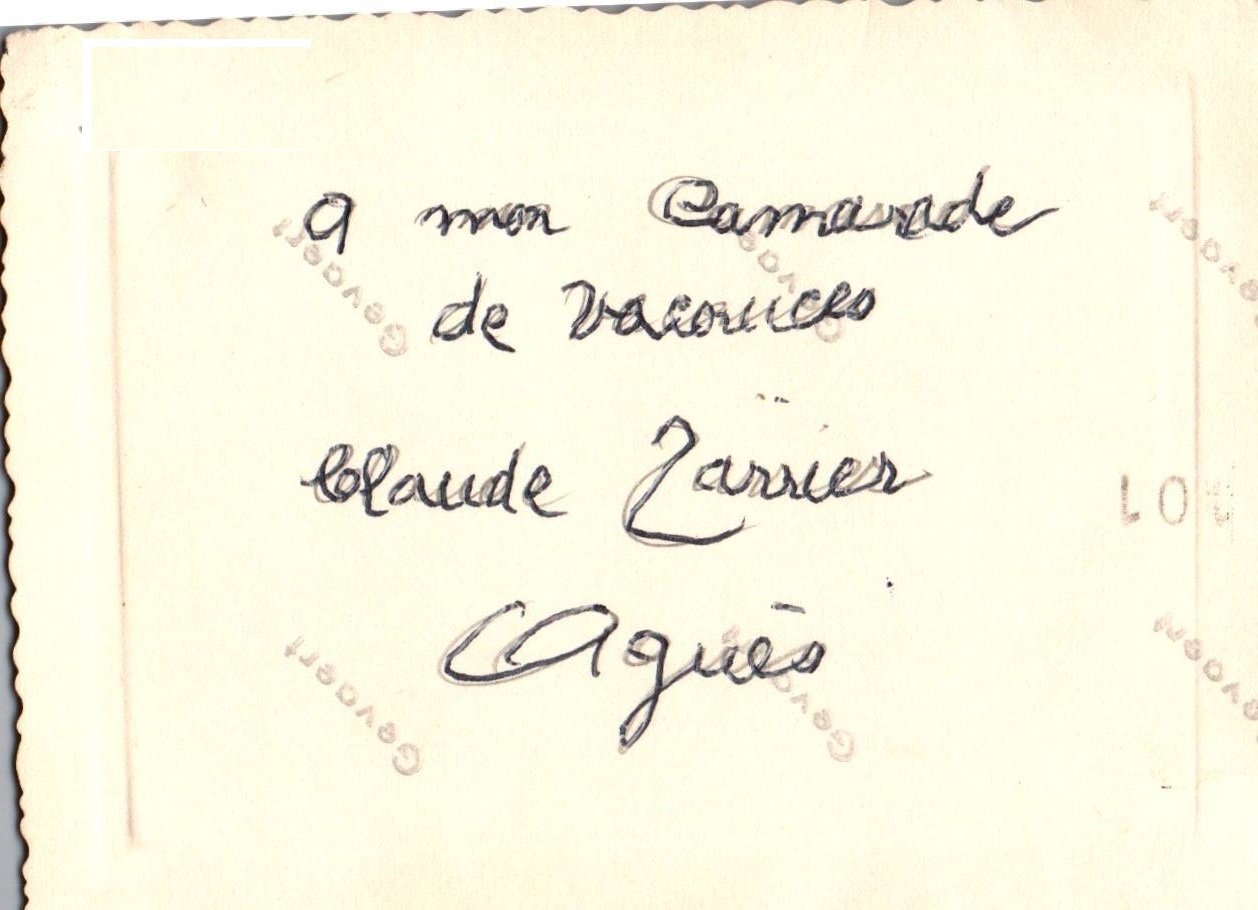 A mon Camarade
de Vacances
Claude
Agnès
Gevaert
Gevaert
Gevaert
Gevaert
Gevaert
Gevaert
101